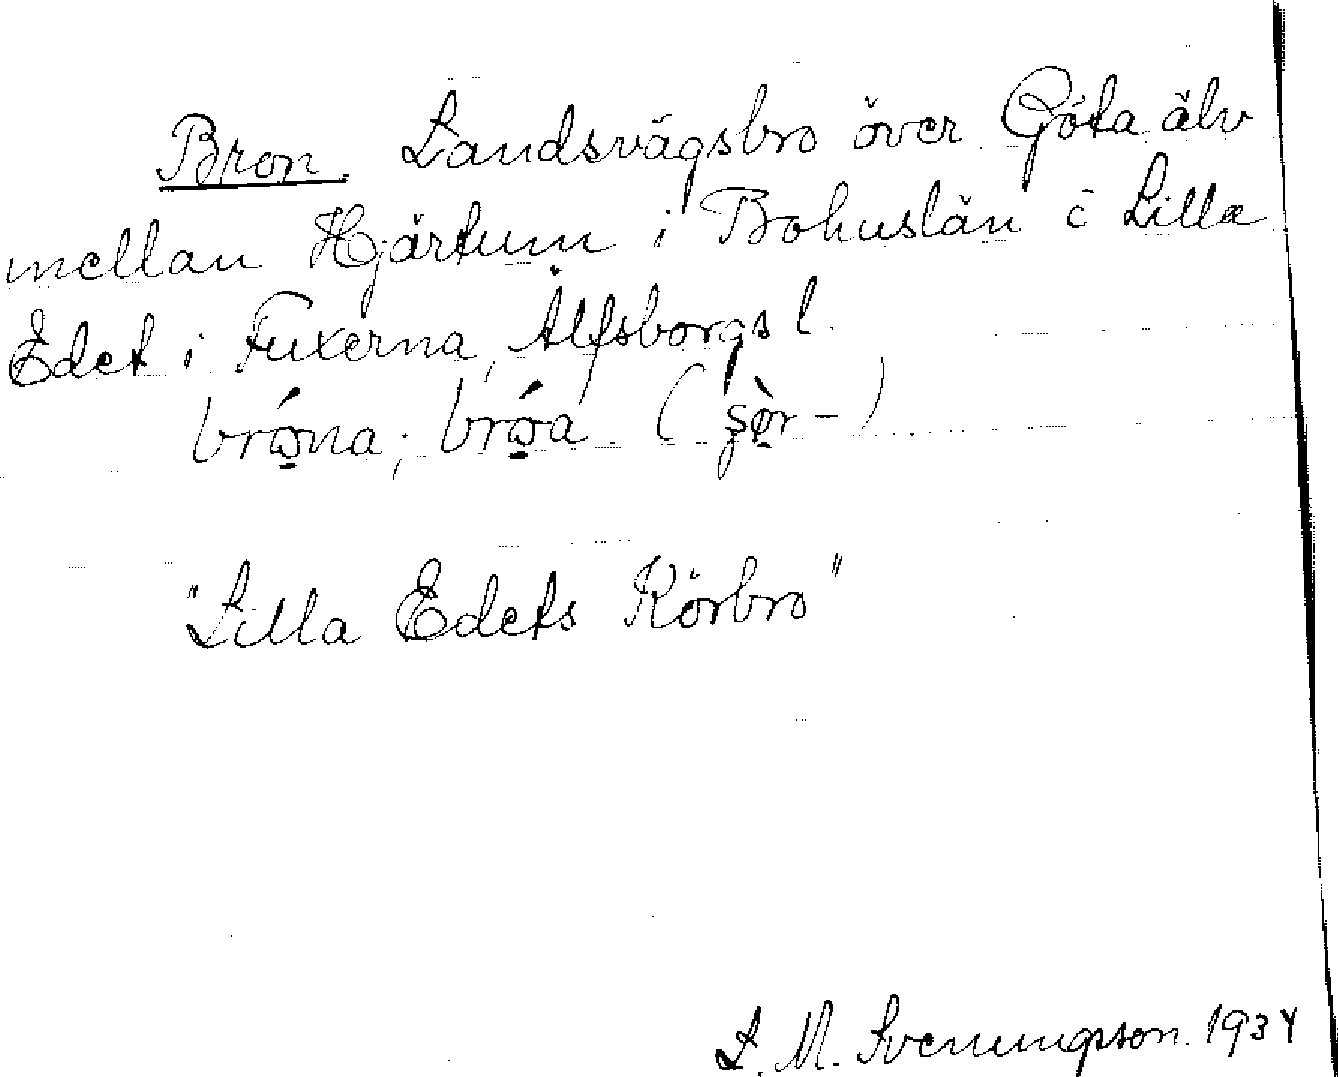 Bron. Landsvägsbro över Göta älv
mellan Hjärtum i Bohuslän o Lilla
Edet i Fuxerna, Älfsborgs l.
bróna; bróa (şò̱r-)
"Lilla Edets Körbro"
L. M. Svenungsson. 1934